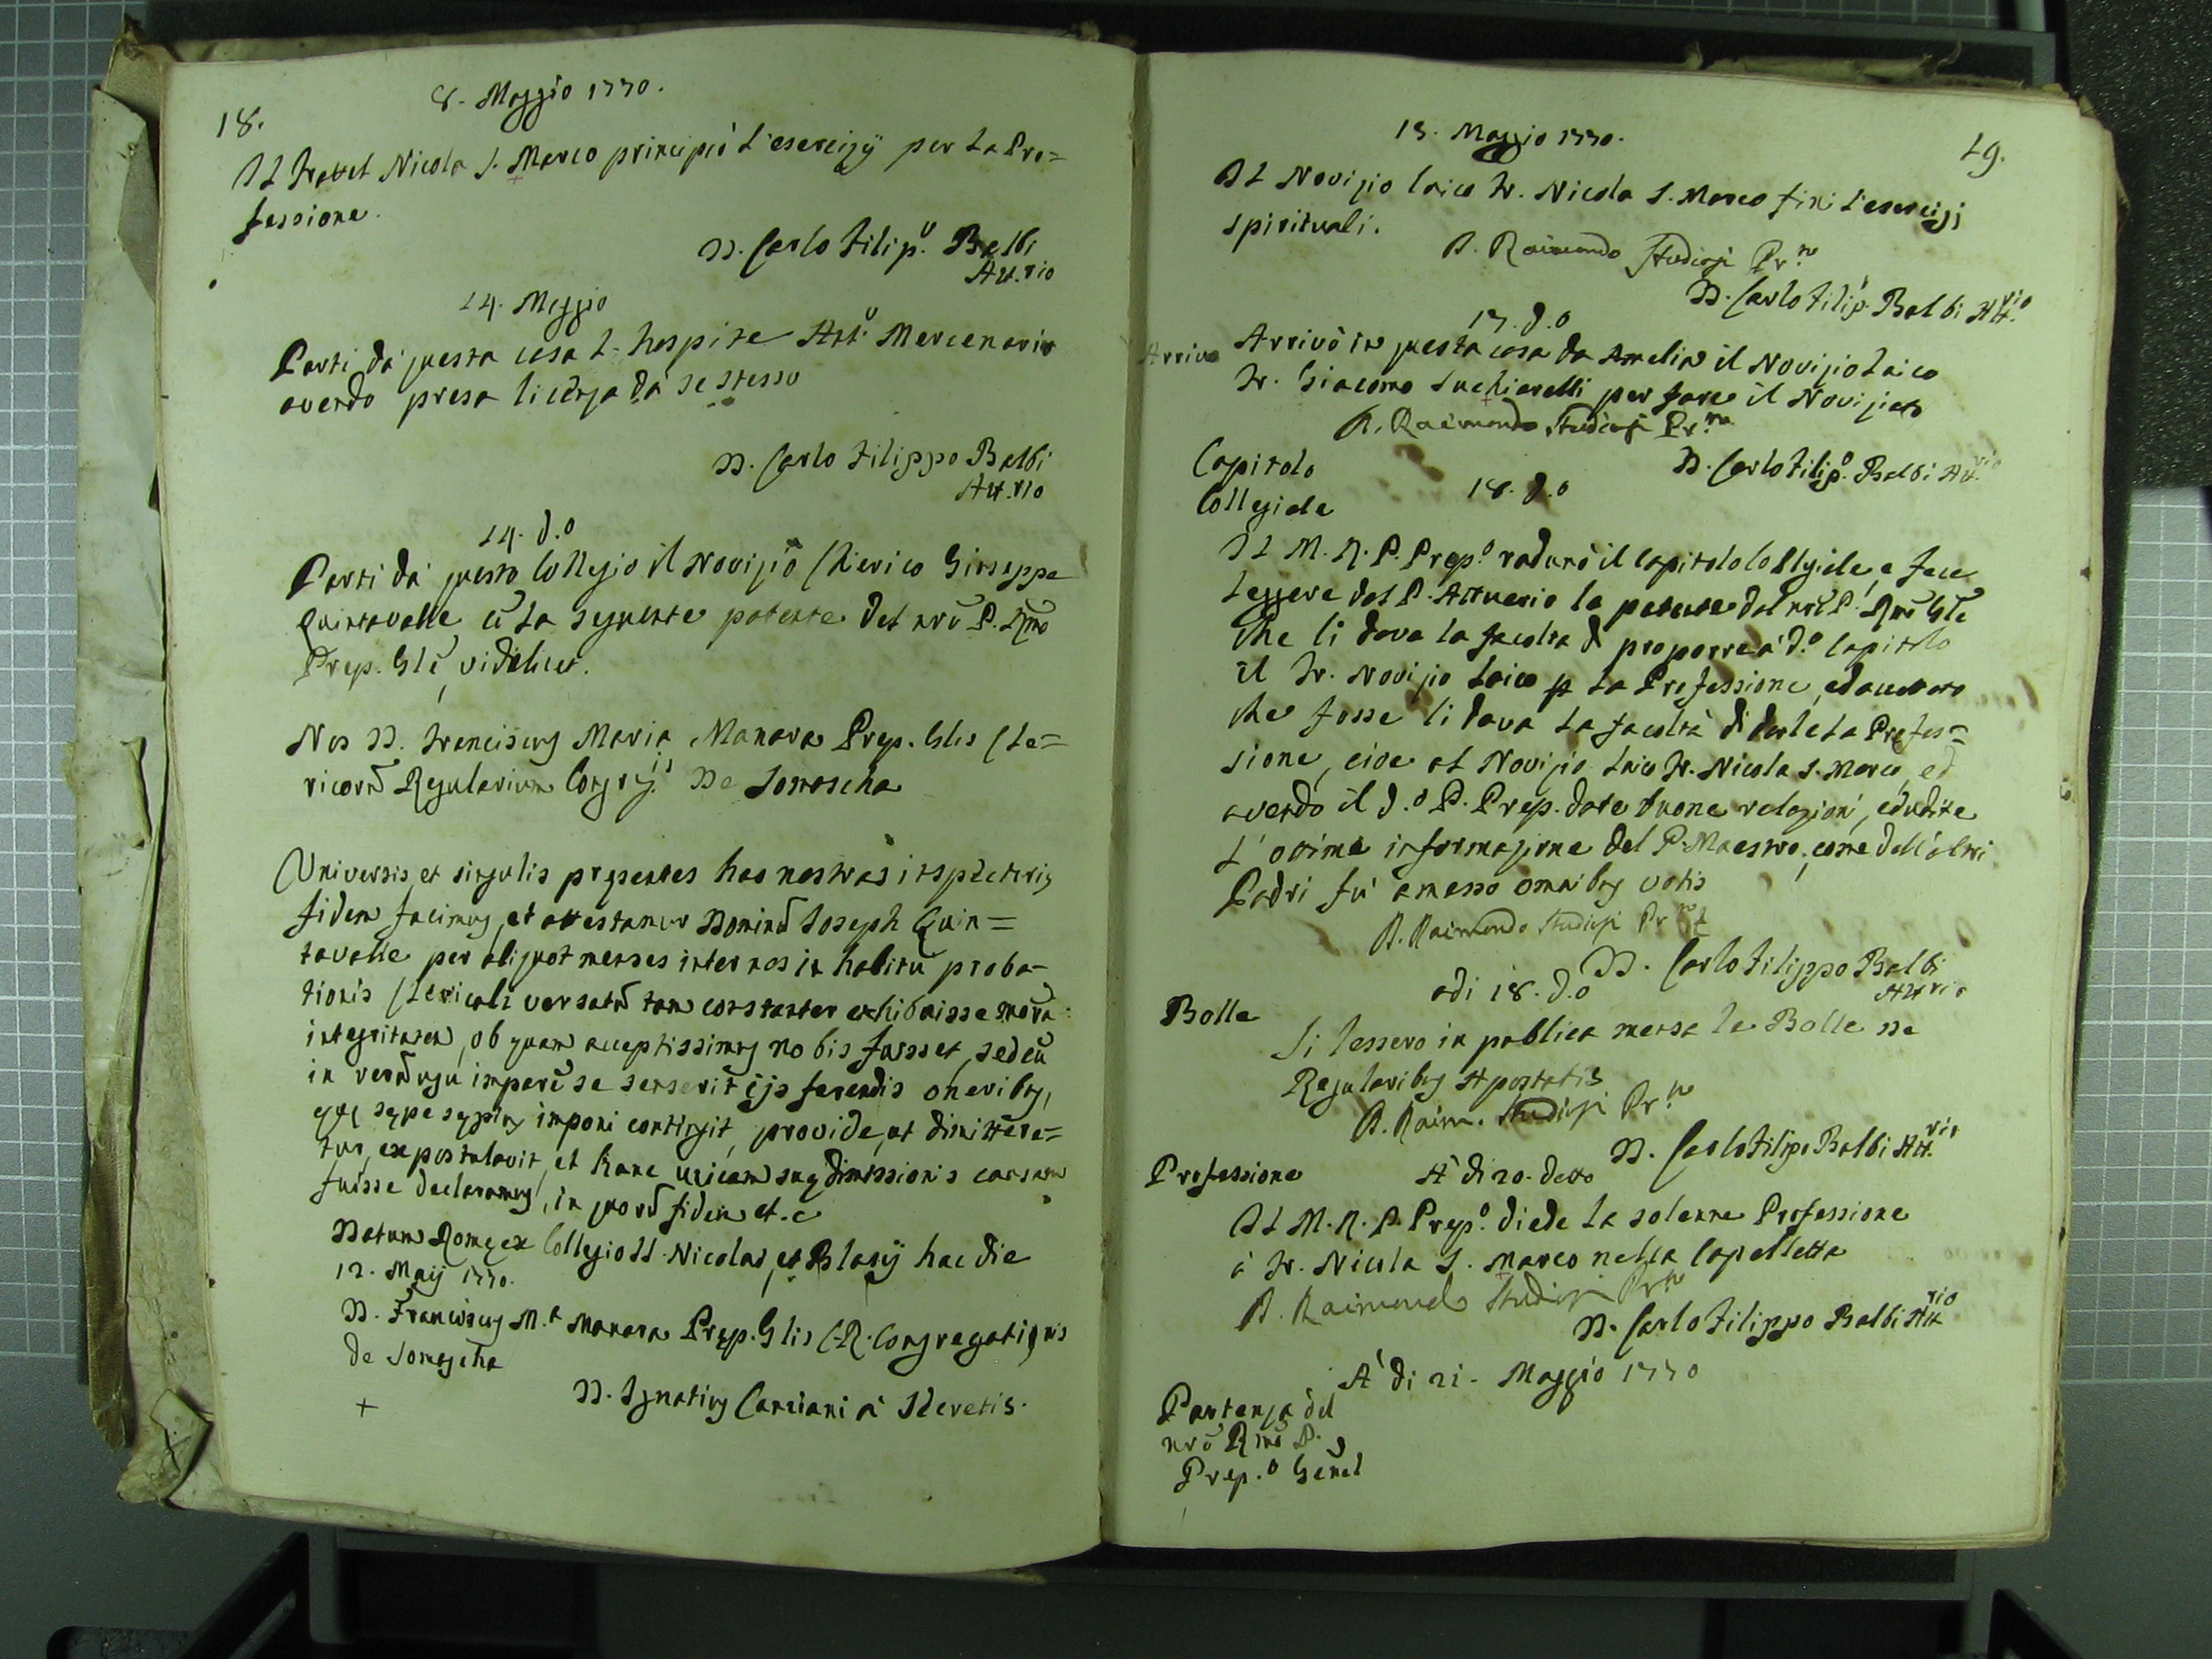 18.
8. Maggio 1770.
Il Fratel Nicola S. Marco principiò l'esercizÿ per la Pro=
fessione.
D. Carlo Filip.o Balbi
Att.rio
14. Maggio
Partì dà questa casa l'hospite Ant.o Mercenario
avendo presa licēza dà se stesso
D. Carlo Filippo Balbi
Att.rio
14. d.o
Partì dà questo Collegio il Novizio Chierico Giuseppe
Quintavalle cū la seguente patente del nrō P. Rmō
Prep. Glē, videlicet.
Nos D. Franciscus Maria Manara Prep. Glis Cle=
ricorū Regularium Congreg.is De Somascha
Universis, et singulis presentes has nostras inspecturis
fidem facimus, et attestamur Dominū Joseph Quin=
tavalle per aliquot menses inter nos in habitu proba=
tionis Clericali versatū tam constanter exhibuisse morū
integritatem, ob quam acceptissimus nobis fuisset, sed cū
in verū usu imparē se senserit ijs ferendis oneribus,
que sepe sepius imponi contingit, provide, ut dimittere=
tur, expostulavit, et hanc unicam sue dimissionis causam
fuisse declaramus, in quorū fidem et.c
Datum Rome ex Collegio SS. Nicolai, et Blasÿ hac die
12. Maij 1770.
D. Franciscus M.a Manara Prep. Glis C.R. Congregationis
de Somascha
+
D. Ignatius Canciani à Secretis.
19.
15. Maggio 1770.
Il Novizio laico Fr. Nicola S. Marco finì l'esercizj
spirituali.
D. Raimondo Studiosi Pr.to
D. Carlo Filip. Balbi Att.rio
17. d.o
Arrivo
Arrivò in questa casa da Amelia il Novizio Laico
Fr. Giacomo Luchiarelli per fare il Noviziato
D. Raimondo Studiosi Pr.to
D. Carlo Filip.o Balbi Att.rio
Capitolo
Collegiale
18. d.o
Il M. R. P. Prep.o radunò il Capitolo Collegiale, e fece
leggere dal P. Attuario la patente del nrō P. Rmō Glē
che li dava la facoltà di proporre à d.o Capitolo
il Fr. Novizio Laico p la Professione, ed accettato
che fosse li dava la facoltà di darle la Profes=
sione, cioe al Novizio Laico Fr. Nicola S. Marco, ed
avendo il d.o P. Prep. date buone relazioni, ed udite
l'ottime informazione del P. Maestro, come dell'altri
Padri fù amesso omnibus votis
D. Raimondo Studiosi Pr.to
D. Carlo Filippo Balbi
Att.rio
Bolle
adi 18. d.o
Si lessero in publica mensa le Bolle De
Regularibus Apostatis
D. Raim. Studiosi Pr.to
D. Carlo Filipo Balbi Att.rio
Professione
A di 20. detto
Il M. R. P. Prep.o diede la solenne Professione
à Fr. Nicola S. Marco nella Capelletta
D. Raimondo Studiosi Pr.to
D. Carlo Filippo Balbi Att.rio
A' di 21. Maggio 1770
Partenza del
nrō Rmō P.
Prep.o Genel